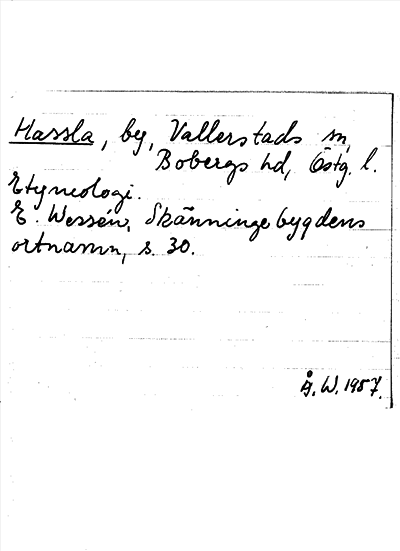 Hassla, by, Vallerstads sn,
Bobergs hd, Östg. l.
Etymologi.
E. Wessén, Skänningebygdens
ortnamn, s. 30.
Å. W. 1957.